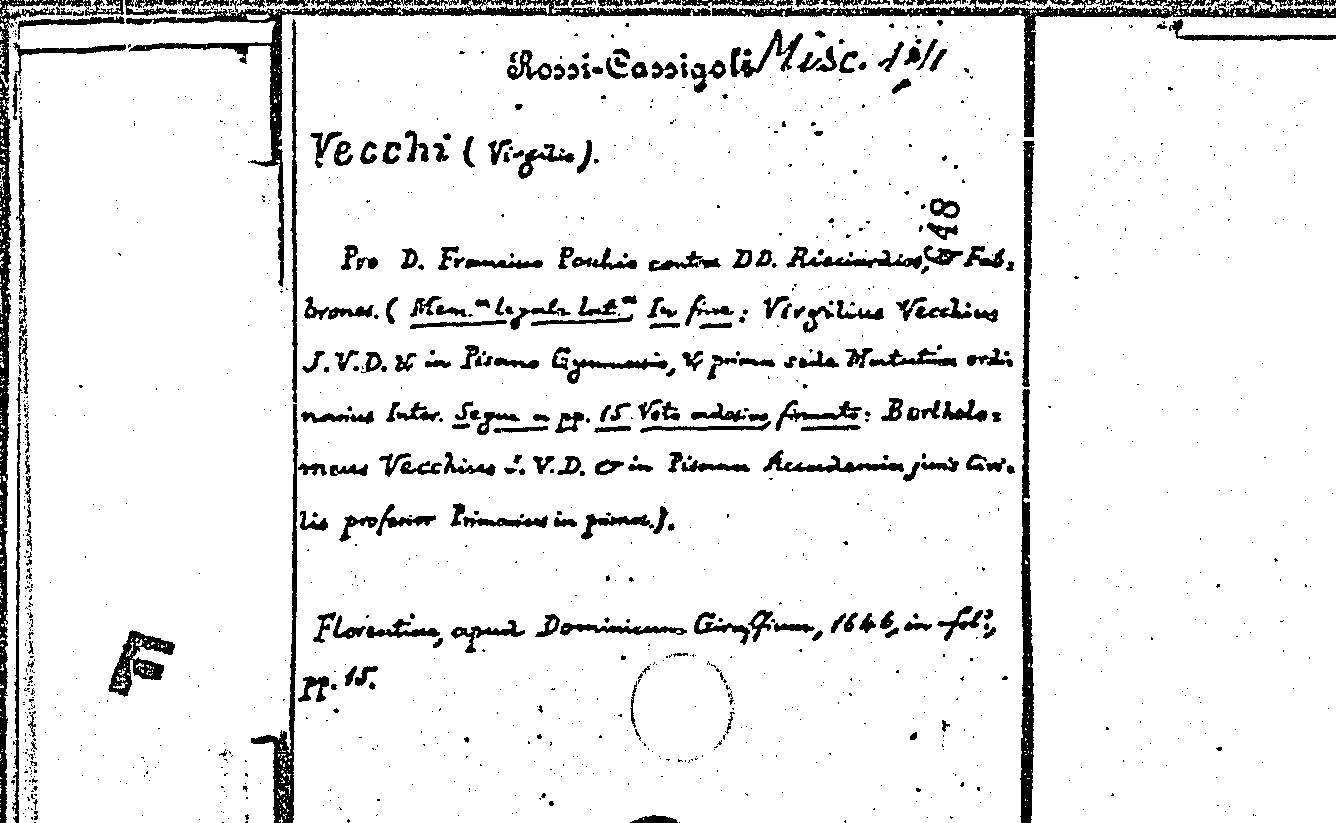 Rossi-Cassigoli Misc.
48
Vecchi (Virgilio).
Pro D. Francisco Poschio contra DD. Ricciardios, & Fab=
brones. (Mem.ª legale lat.ª In fine: Virgilius Vecchius
J.V.D. & in Pisano Gymnasio, & prima sede Matutina ordi
narius Inter. Segue a pp. 15 Voto adesivo, firmato: Bartholo=
meus Vecchius J.V.D. & in Pisana Accademia juris Civi=
lis profesior Primarius in primas.).
Florentiae, apud Dominicum Giraffium, 1646, in-fol?,
pp. 15.
F